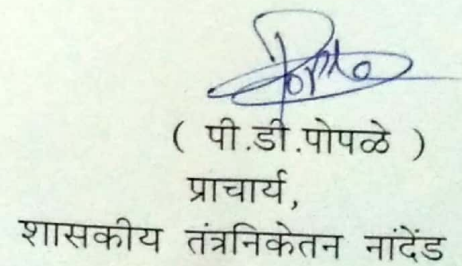 ( पी.डी.पोपळे )
प्राचार्य,
शासकीय तंत्रनिकेतन नांदेंड